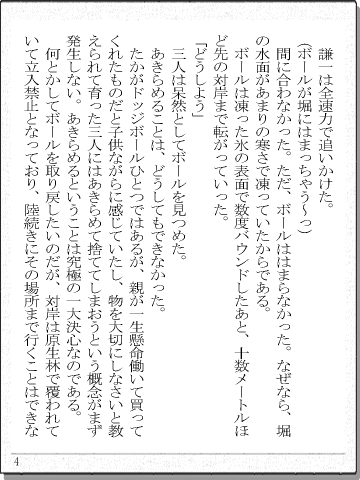 謙一は全速力で追いかけた。
(ボールが堀にはまっちゃう〜っ)
間に合わなかった。ただ、ボールははまらなかった。なぜなら、堀
の水面があまりの寒さで凍っていたからである。
ボールは凍った氷の表面で数度バウンドしたあと、十数メートルほ
ど先の対岸まで転がっていった。
「どうしよう」
三人は呆然としてボールを見つめた。
あきらめることは、どうしてもできなかった。
たかがドッジボールひとつではあるが、親が一生懸命働いて買って
くれたものだと子供ながらに感じていたし、物を大切にしなさいと教
えられて育った三人にはあきらめて捨ててしまおうという概念がまず
発生しない。あきらめるということは究極の一大決心なのである。
何とかしてボールを取り戻したいのだが、対岸は原生林で覆われて
いて立入禁止となっており、陸続きにその場所まで行くことはできな
4